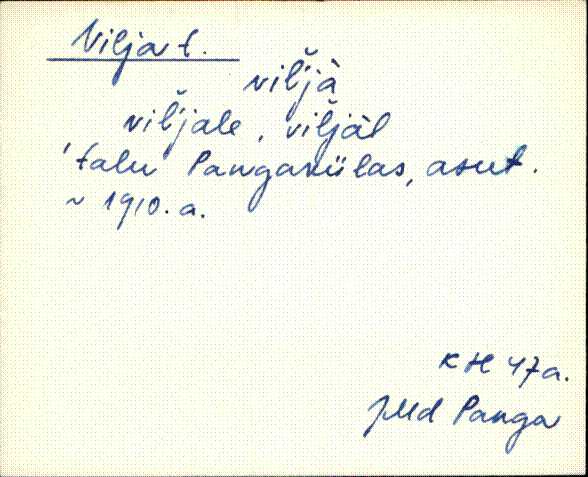 Vilja t.
vil̆jà
vil̆jale, vil̆jàl
'talu Pangakülas, asut.
~ 1910. a.
KH 47a.
JMd Panga